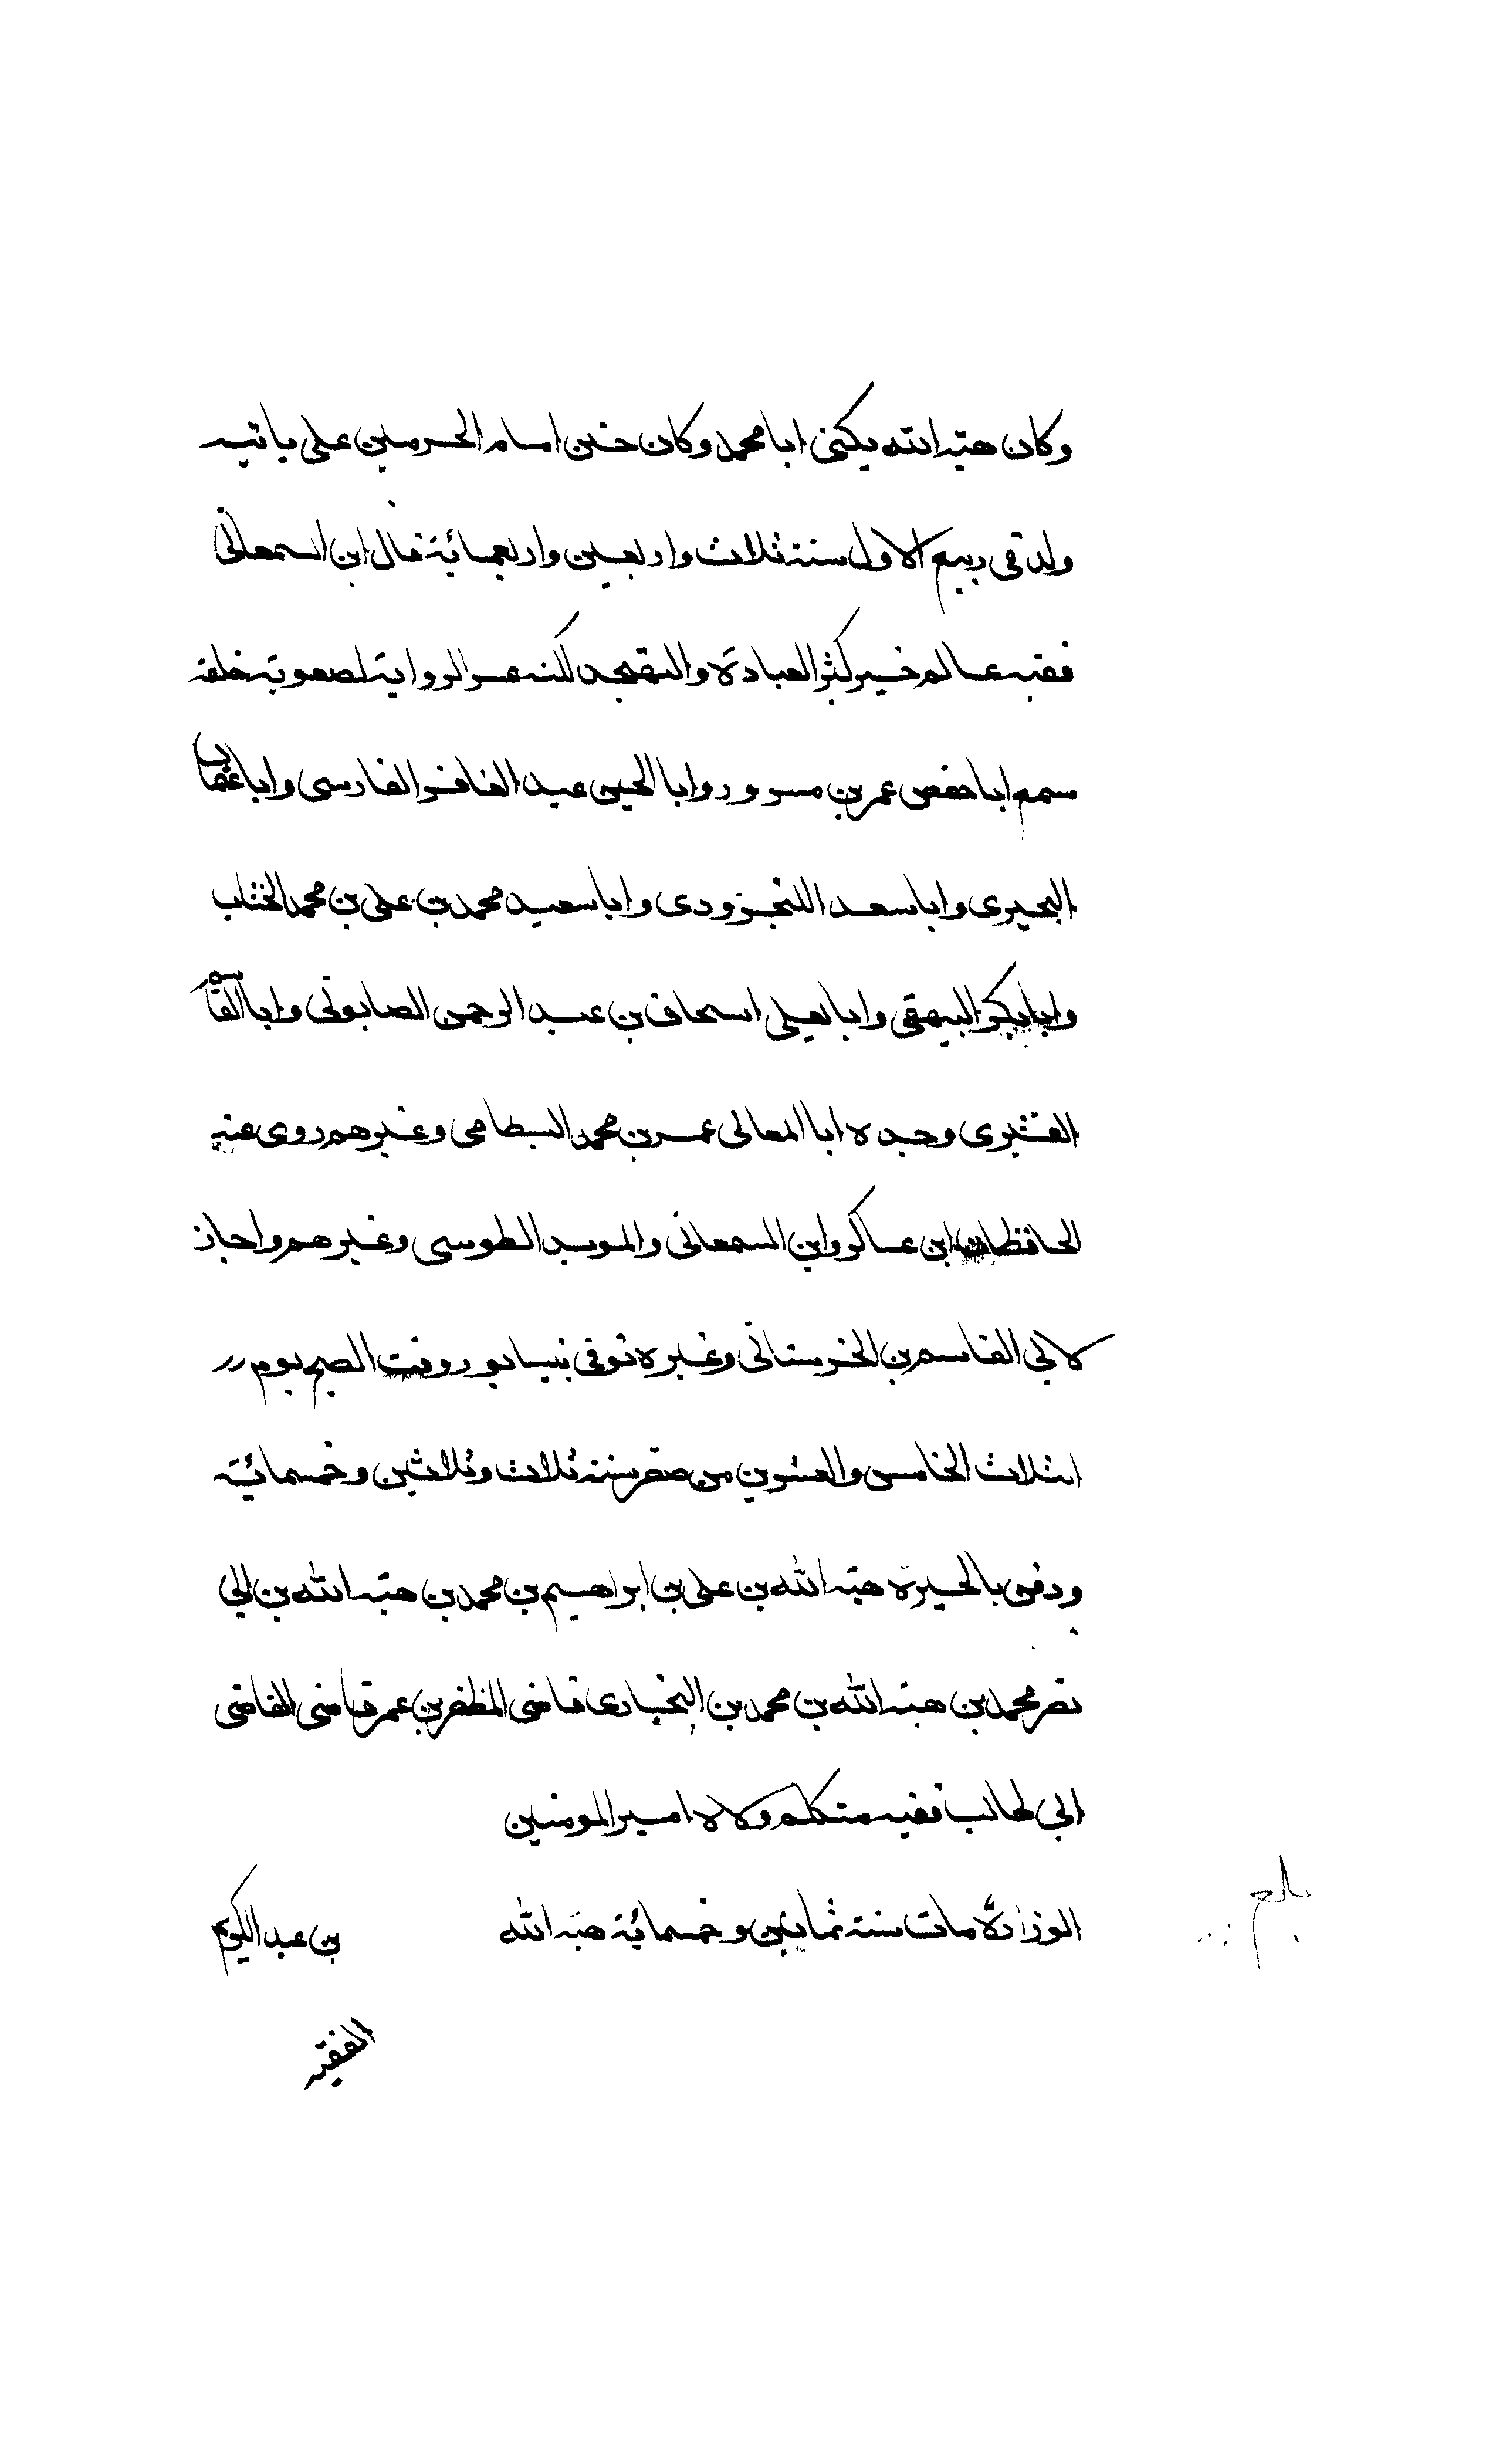 وكان هبة الله يكنى ابا محمد وكان ختن امام الحرمين على ياتيه
ولد فى ربيع الاول سنة ثلاث واربعين واربعمائة قال ابن السمعانى
فقيه عالم خير كثير العبادة والتهجد لكنه عسر الرواية لصعوبة خلقه
سمع ابا حفص عمر بن مسرور وابا الحسين عبد الغافر الفارسى وابا عثمان
البحيرى وابا سعد الكنجرودى وابا سعيد محمد بن على بن محمد الخشاب
وابا بكر البيهقى وابا يعلى اسحاق بن عبد الرحمن الصابونى وابا القاسم
القشيرى وجده ابا المعالى عمر بن محمد البسطامى وغيرهم روى عنه
الحافظان ابن عساكر وابن السمعانى والمويد الطوسى وغيرهم واجاز
لابى القاسم بن الخرستانى وغيره توفى بنيسابور وقت الصبح يوم
الثلاث الخامس والعشرين من صفر سنة ثلاث وثلاثين وخمسمائة
ودفن بالحيرة هبة الله بن على بن ابراهيم بن محمد بن هبة الله بن ابى
نصر محمد بن هبة الله بن محمد بن البخارى قاضى المظفر بن عمر قاضى القاضى
ابى طالب فقيه متكلم ولاه امير المومنين
الوزارة مات سنة ثمانين وخمسمائة هبة الله بن عبد الكريم
الفقيه